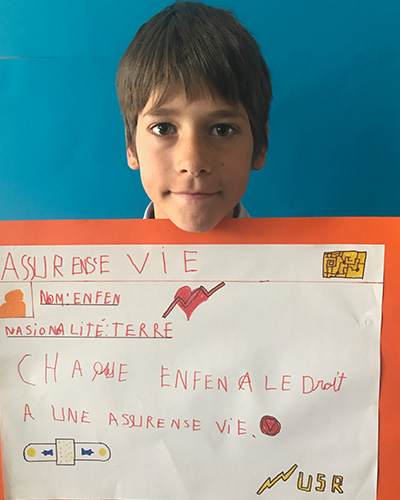 ASSURENSE VIE
NOM: ENFEN
NASIONALITÉ: TERRE
CHAQUE ENFEN A LE Droit
A UNE ASSURENSE VIE.
USR